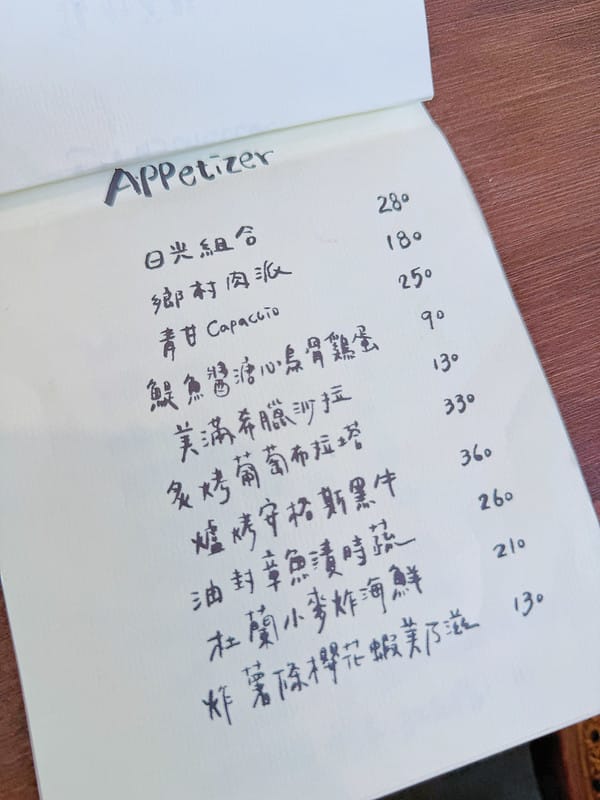 Appetizer
日光組合 280
鄉村肉派 180
青甘 Capaccio 250
鯷魚醬溏心烏骨鷄蛋 90
美滿希臘沙拉 130
炙烤葡萄布拉塔 330
爐烤安格斯黑牛 360
油封章魚漬時蔬 260
杜蘭小麥炸海鮮 210
炸薯條櫻花蝦美乃滋 130